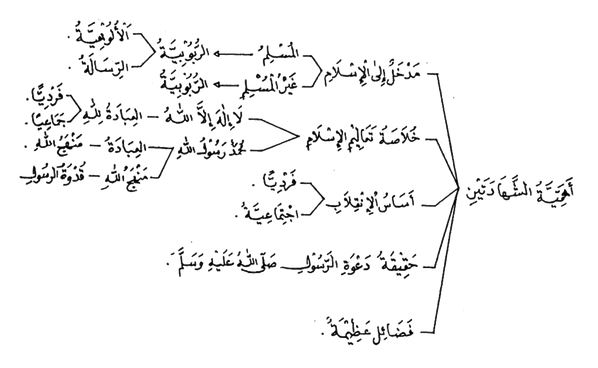 أَهَمِّيَّةُ الشَّهَادَتَيْنِ
مَدْخَلٌ إِلَى الْإِسْلَامِ
الْمُسْلِمُ
الرُّبُوْبِيَّةُ
اَلْأُلُوْهِيَّةُ.
الرِّسَالَةُ.
غَيْرُ الْمُسْلِمِ
الرُّبُوْبِيَّةُ
خُلَاصَةُ تَعَالِيْمِ الْإِسْلَامِ
لَا إِلٰهَ إِلَّا اللهُ – العِبَادَةُ لِلّٰهِ
فَرْدِيًّا.
جَمَاعِيًّا.
مُحَمَّدٌ رَسُوْلُ اللهِ
العِبَادَةُ – مَنْهَجُ اللهِ.
مَنْهَجُ اللهِ – قُدْوَةُ الرَّسُوْلِ
أَسَاسُ الْإِنْقِلَابِ
فَرْدِيًّا.
اجْتِمَاعِيَّةُ.
حَقِيْقَةُ دَعْوَةِ الرَّسُوْلِ صَلَّى اللهُ عَلَيْهِ وَسَلَّمَ.
فَضَائِلُ عَظِيْمَةُ.